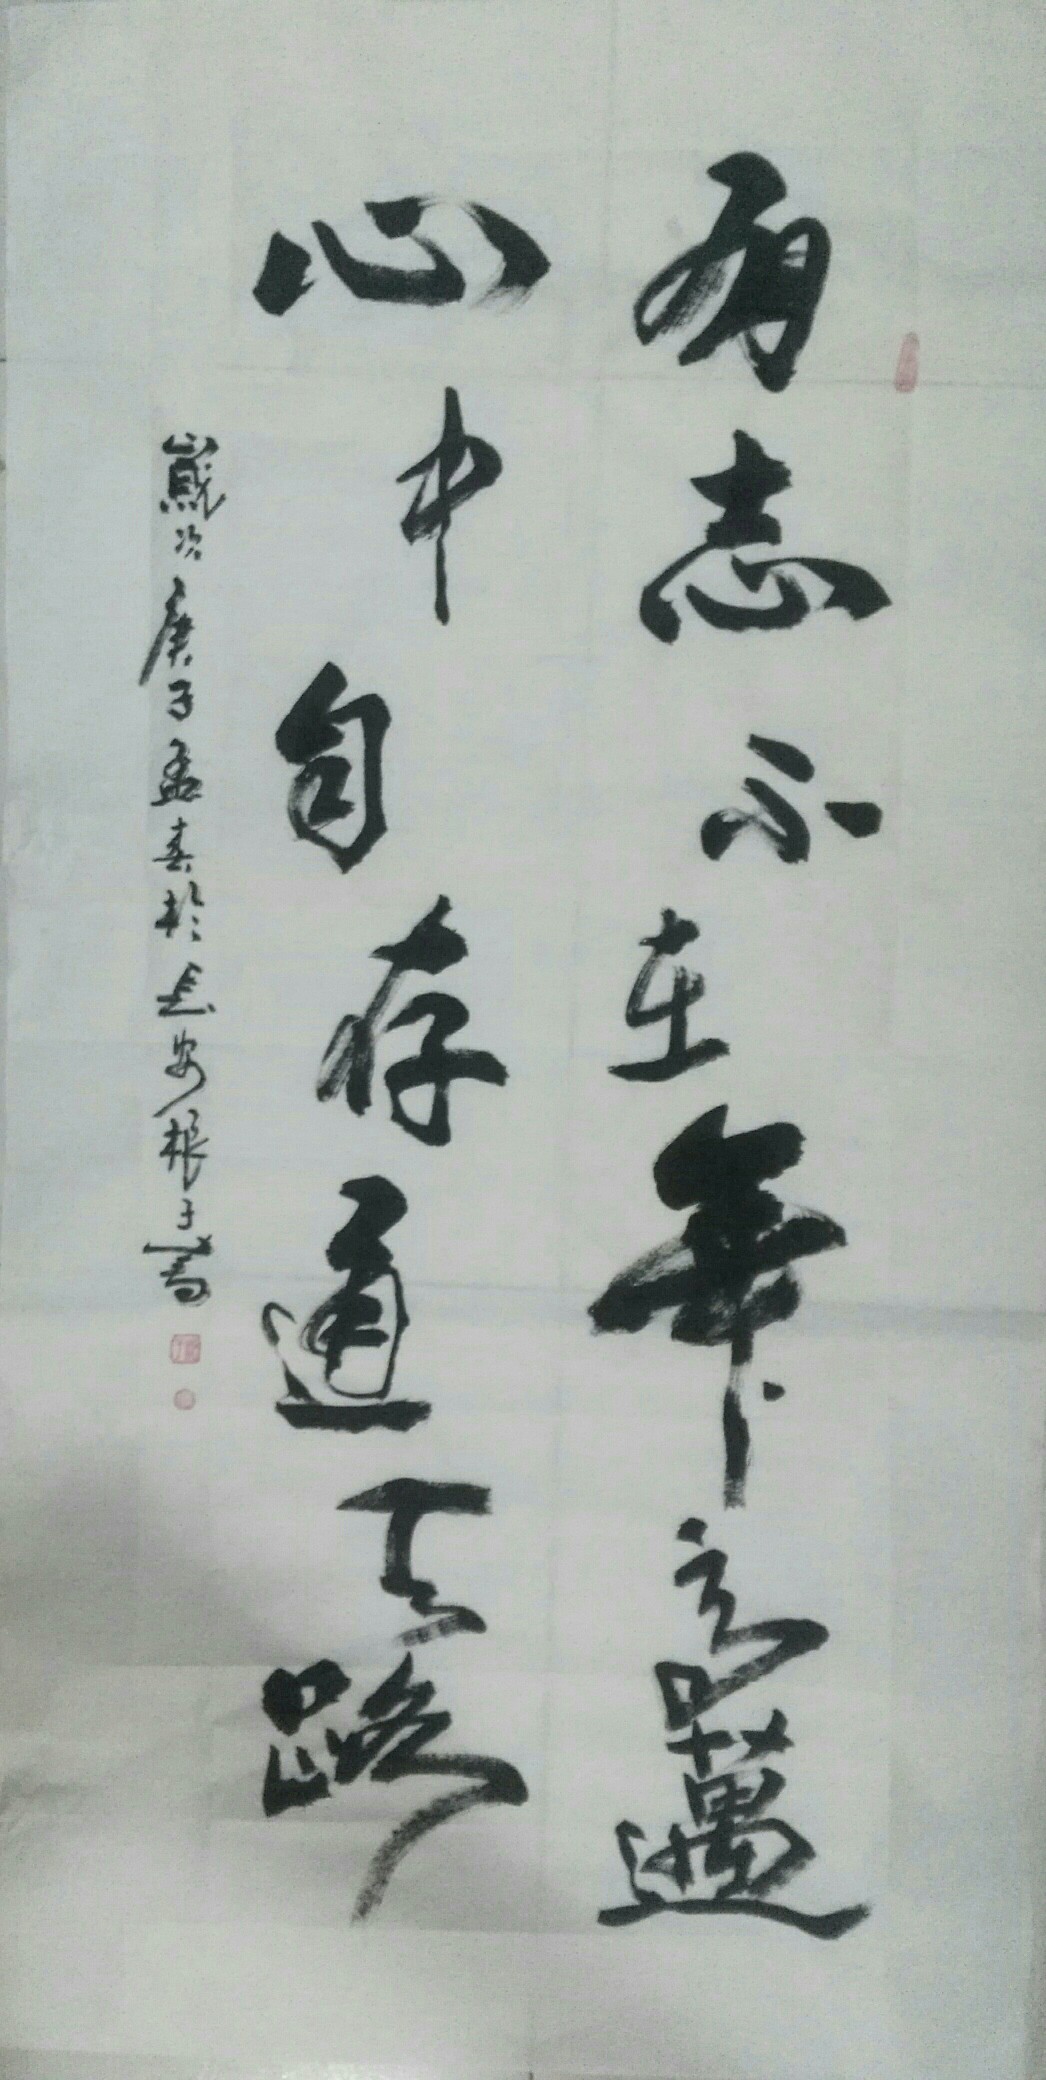 有志不在年高邁
心中自存通天路
歲次庚子孟春於長安根子書